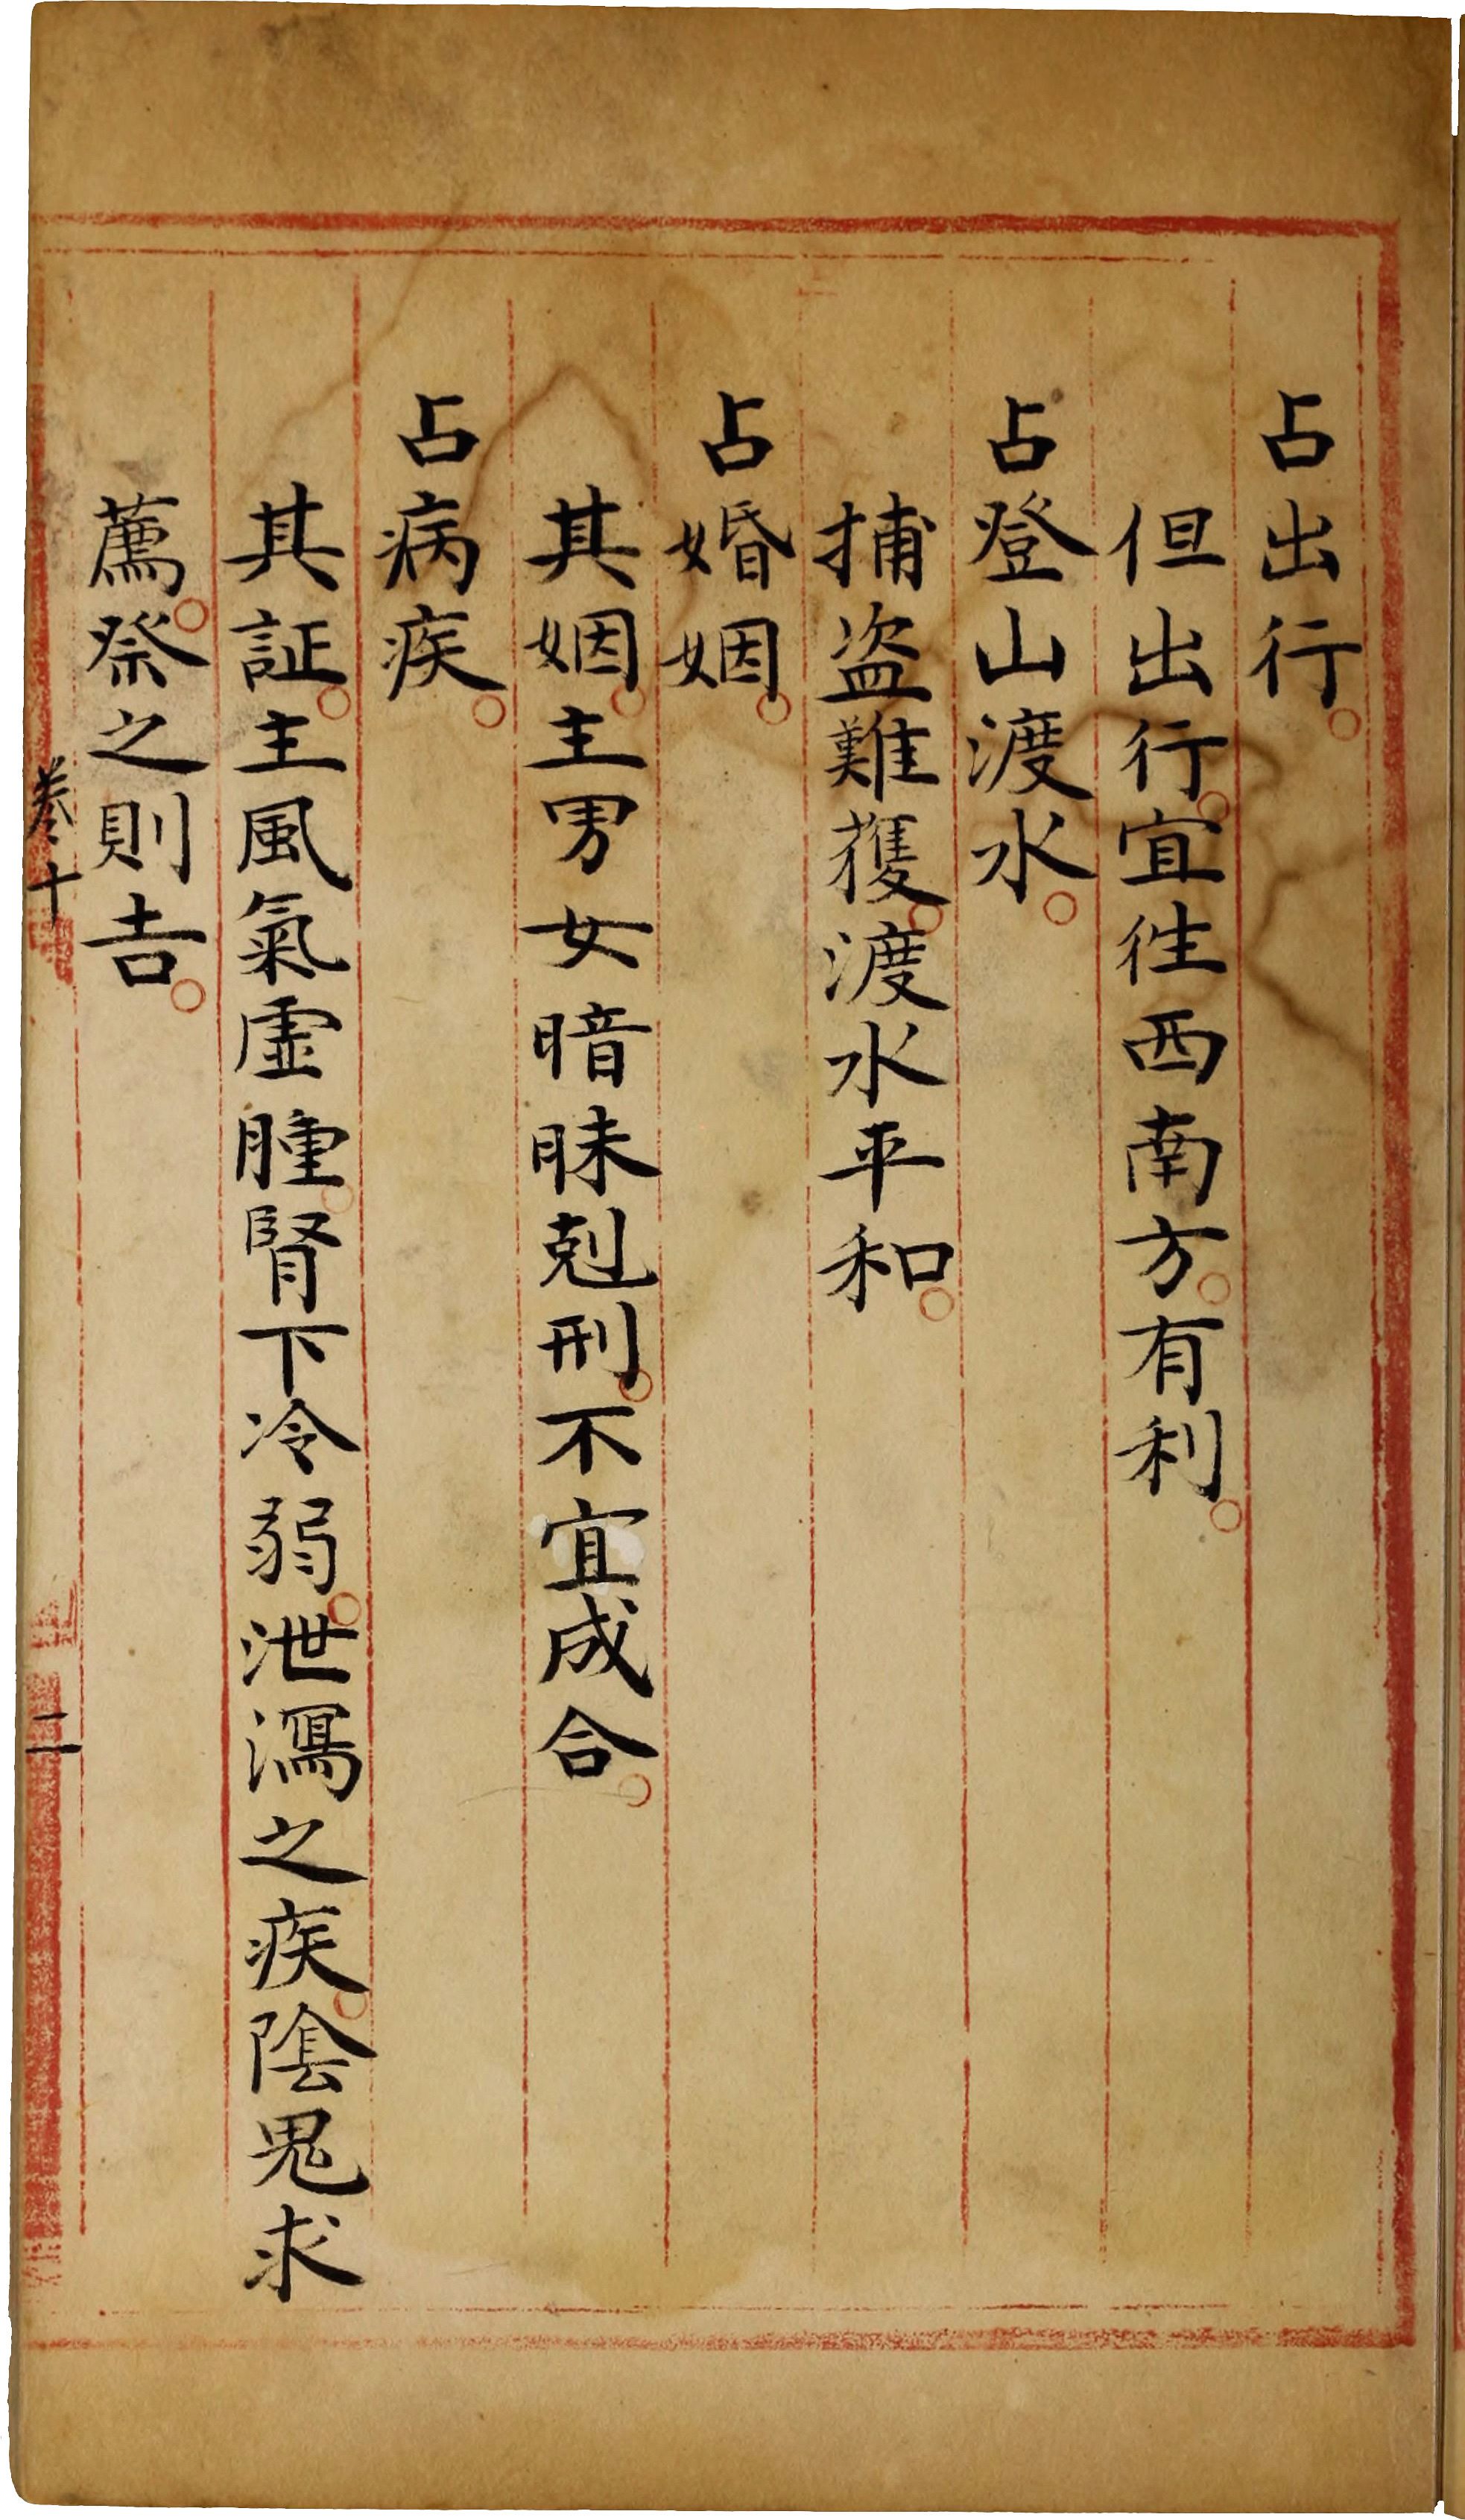 占出行。
但出行。宜徃西南方。有利。
占登山渡水。
捕盗難獲。渡水平和。
占婚姻。
其姻。主男女暗昧剋刑。不宜成合。
占病疾。
其証。主風氣虛腫。腎下冷弱。泄瀉之疾。陰鬼求
薦。祭之則吉。
卷十
二